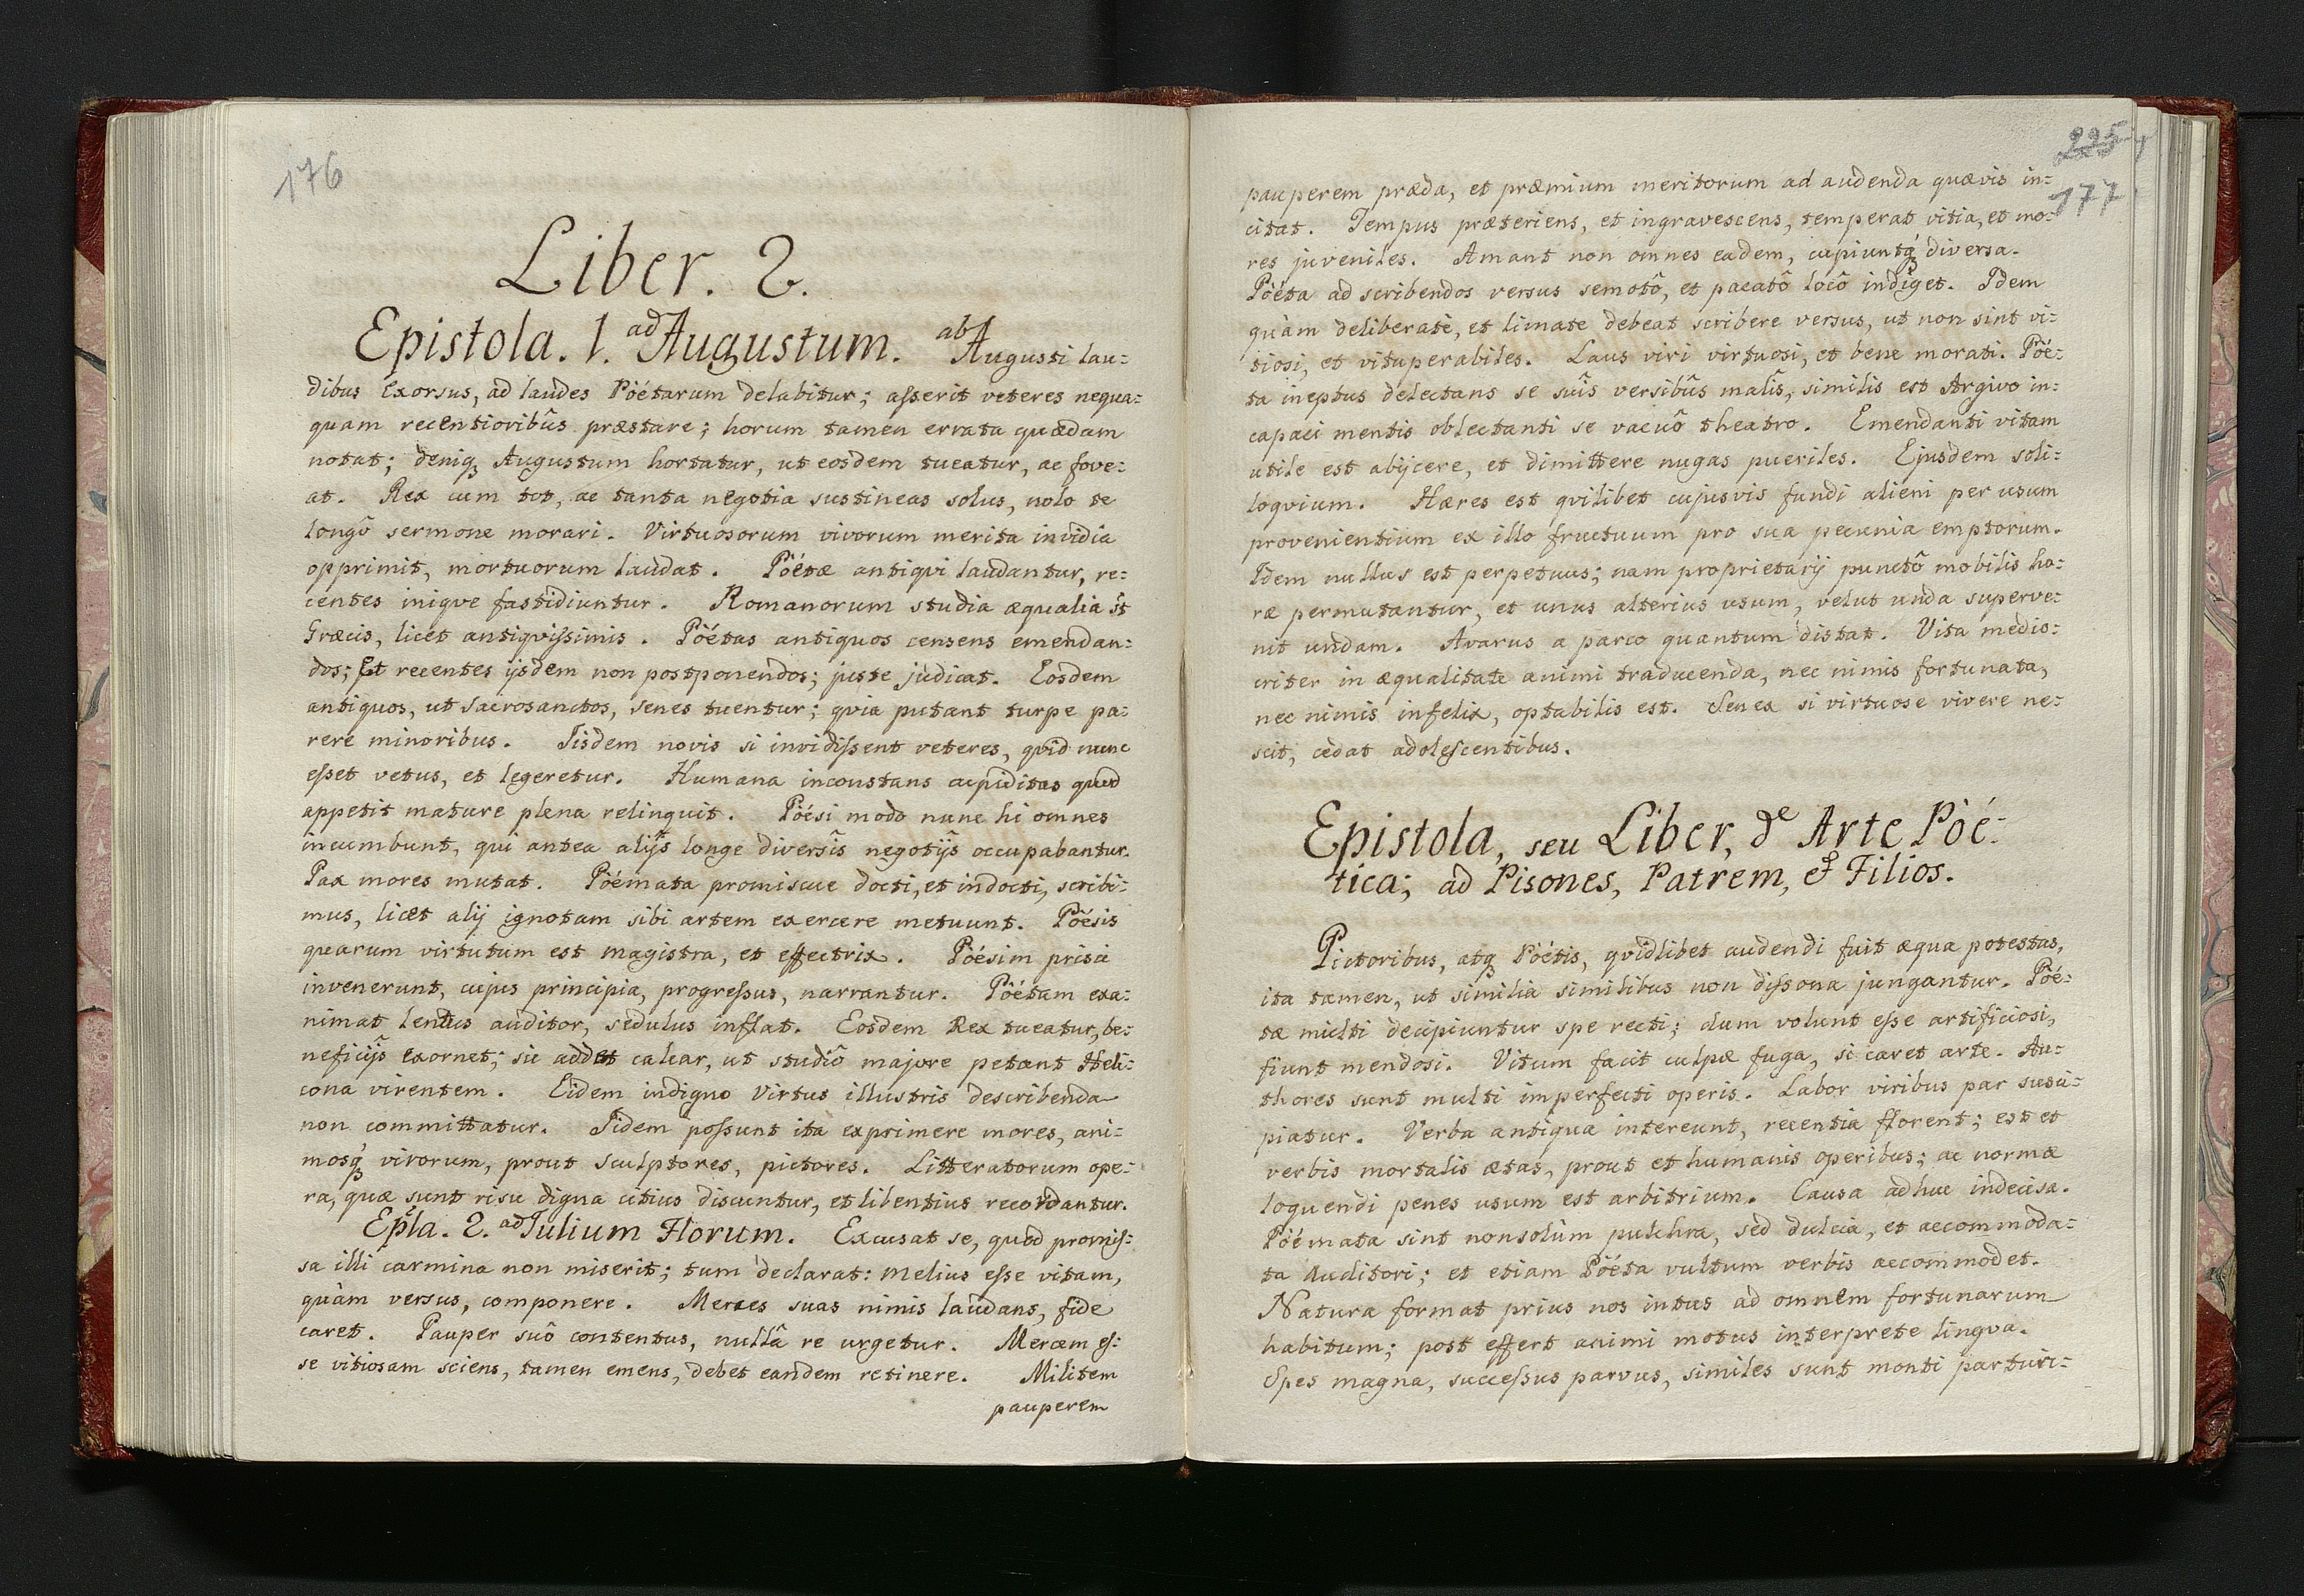 176
Liber. 2.
Epistola. 1. ad Augustum. ab Augusti lau:
dibus Exorsus, ad laudes Pöétarum delabitur; aſserit veteres nequa:
quam recentioribûs præstare; horum tamen errata quædam
notat; deniq₃ Augustum hortatur, ut eosdem tueatur, ac fove:
at. Rex cum tot, ac tanta negotia sustineas solus, nolo te
longô sermone morari. Virtuosorum vivorum merita invidia
opprimit, mortuorum laudat. Pöétæ antiqvi laudantur, re:
centes iniqve fastidiuntur. Romanorum studia æqualia st̃
Græcis, licet antiqviſsimis. Pöétas antiquos censens emendan:
dos; Et recentes ijsdem non postponendos; juste judicat. Eosdem
antiquos, ut sacrosanctos, senes tuentur; qvia putant turpe pa:
rere minoribus. Iisdem novis si invidiſsent veteres, qvid nunc
eſset vetus, et legeretur. Humana inconstans cupiditas quod
appetit mature plena relinquit. Pöési modo nunc hi omnes
incumbunt, qui antea alijs longe diversîs negotijs occupabantur.
Pax mores mutat. Pöémata promiscue docti, et indocti, scribi:
mus, licet alij ignotam sibi artem exercere metuunt. Pöésis
quarum virtutum est magistra, et effectrix. Pöésim prisci
invenerunt, cujus principia, progreſsus, narrantur. Pöétam exa:
nimat lentus auditor, sedulus inflat. Eosdem Rex tueatur, be:
neficijs exornet; sic addat calcar, ut studiô majore petant Heli:
cona virentem. Eidem indigno Virtus illustris describenda
non committatur. Iidem poſsunt ita exprimere mores, ani:
mosq₃ virorum, prout sculptores, pictores. Litteratorum ope:
ra, quæ sunt risu digna citius discuntur, et libentius recordantur.
Ep̃la. 2. ad Iulium Florum. Excusat se, quod promiſ:
sa illi carmina non miserit; tum declarat: melius eſse vitam,
quàm versus, componere. Merces suas nimis laudans, fide
caret. Pauper suô contentus, nullâ re urgetur. Mercem eſ:
se vitiosam sciens, tamen emens, debet eandem retinere. Militem
pauperem
225
177
pauperem præda, et præmium meritorum ad audenda quævis in:
citat. Tempus præteriens, et ingravescens, temperat vitia, et mo:
res juveniles. Amant non omnes eadem, cupiuntq₃ diversa.
Pöéta ad scribendos versus semotô, et pacatô locô indiget. Idem
quàm deliberatè, et limate debeat scribere versus, ut non sint vi:
tiosi, et vituperabiles. Laus viri virtuosi, et bene morati. Pöé:
ta ineptus delectans se suîs versibûs malîs, similis est Argivo in:
capaci mentis oblectanti se vacuô theatro. Emendanti vitam
utile est abijcere, et dimittere nugas pueriles. Ejusdem soli:
loqvium. Hæres est qvilibet cujusvis fundi alieni per usum
provenientium ex illo fructuum pro sua pecunia emptorum.
Idem nullus est perpetuus; nam proprietarij punctô mobilis ho:
ræ permutantur, et unus alterius usum, velut unda superve:
nit undam. Avarus a parco quantum distat. Vita medio:
criter in æqualitate animi traducenda, nec nimis fortunata,
nec nimis infelix, optabilis est. Senex si virtuose vivere ne:
scit, cedat adoleſcentibus.
Epistola, seu Liber, de Arte Pöé:
tica; ad Pisones, Patrem, & Filios.
Pictoribus, atq₃ Pöétis, qvidlibet audendi fuit æqua potestas,
ita tamen, ut similia similibus non diſsona jungantur. Pöé:
tæ multi decipiuntur spe recti; dum volunt eſse artificiosi,
fiunt mendosi. Vitum facit culpæ fuga, si caret arte. Au:
thores sunt multi imperfecti operis. Labor viribus par susci:
piatur. Verba antiqua intereunt, recentia florent; est et
verbis mortalis ætas, prout et humanis operibus; ac normæ
loquendi penes usum est arbitrium. Causa adhuc indecisa.
Pöémata sint nonsolùm pulchra, sed dulcia, et accommoda:
ta Auditori; et etiam Pöéta vultum verbis accommodet.
Natura format prius nos intus ad omnem fortunarum
habitum; post effert animi motus interprete lingva.
Spes magna, succeſsus parvus, similes sunt monti parturi: